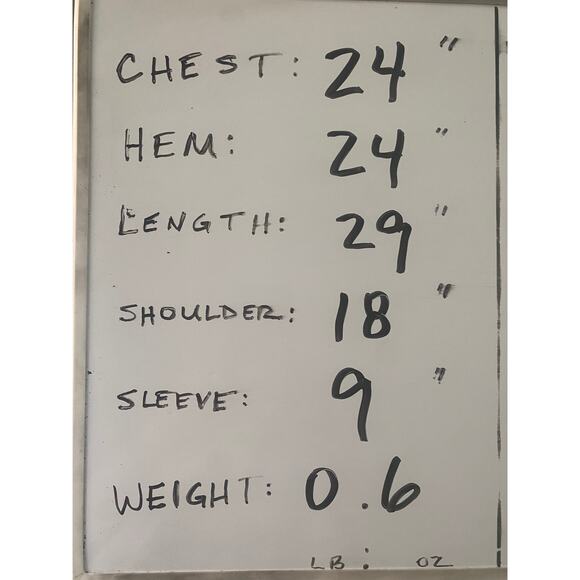 CHEST: 24"
HEM: 24"
LENGTH: 29"
SHOULDER: 18"
SLEEVE: 9"
WEIGHT: 0.6
LB : OZ